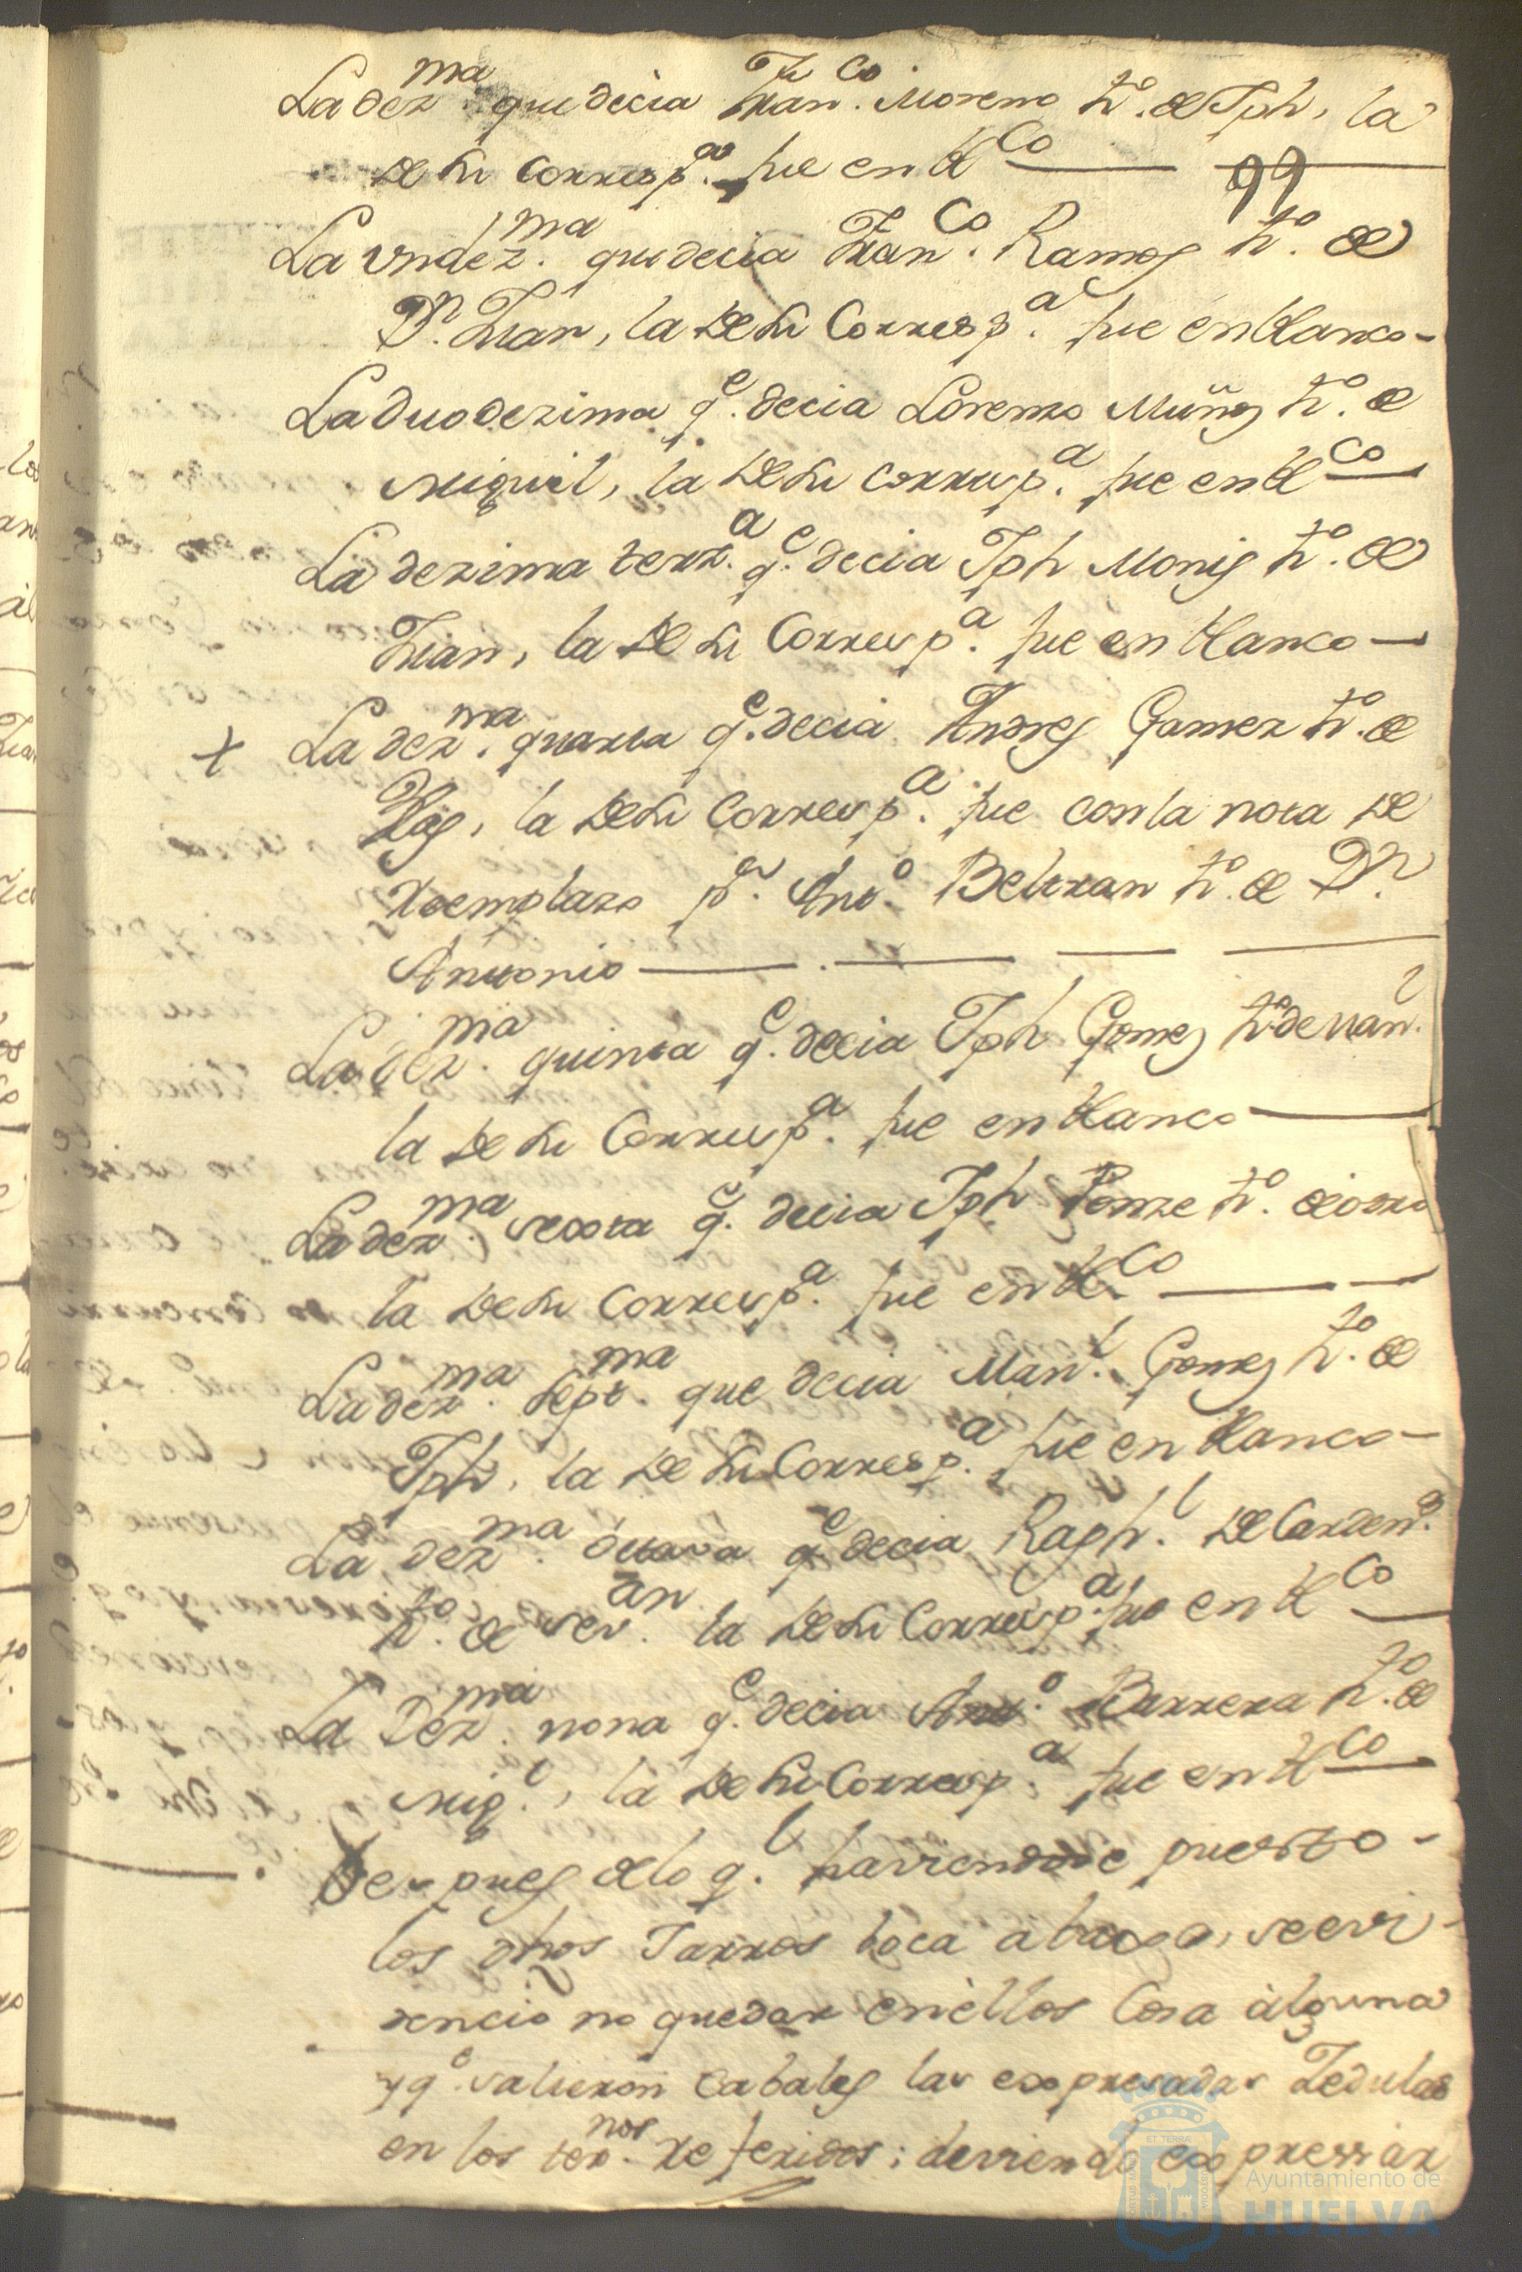 La dez.ma que decia Fran.co Moreno h.o de Jph, la
de su corresp.a fue en bl.co
99
La undez.ma que decia Fran.co Ramos h.o de
D.n Juan, la de su Corresp.a fue en blanco
La duodezima q.e decia Lorenzo Muñoz h.o de
Miguel, la de su corresp.a fue en bl.co
La dezima terz.a q.e decia Jph Monis h.o de
Juan, la de su Corresp.a fue en blanco
+ La dez.ma quarta q.e decia Andres Gamez h.o de
Blas, la de su Corresp.a fue con la nota de
Reemplazo p.r Ant.o Beltran h.o de D.n
Antonio
La dez.ma quinta q.e decia Jph Gomez h.o de Man.l
la de su Corresp.a fue en blanco
La dez.ma sexta q.e decia Jph Ponze h.o de otro
la de su Corresp.a fue en bl.co
La dez.ma sept.ma que decia Man.l Gomez h.o de
Jph, la de su Corresp.a fue en blanco
La dez.ma octava q.e decia Raph.l de Carden.s
h.o de Sev.an la de su Corresp.a fue en bl.co
La Dez.ma nona q.e decia Ant.o Barrera h.o de
Mig.l, la de su Corresp.a fue en bl.co
Despues de lo q.l haviendose puesto
los dhos Jarros boca abaxo, se evi
dencio no quedar en èllos Cosa àlguna
y q.e salieron cabales las expresadas Zedulas
en los ter.nos Referidos; deviendo expressar
ET TERRÆ
Ayuntamiento de
HUELVA